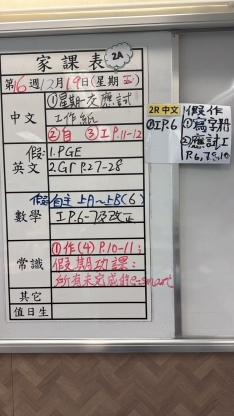 家課表 2A
第16週12月19日(星期五)
中文
①星期五應試
工作紙
②自 ③工P.11-12
英文
假:1.PGE
2.GP P.27-28
數學
假 自主 上A~上B(6)
工P.6-7及改正
常識
①作(4) P.10-11;
假期功課:
所有未完成的e-smart
其它
值日生
2R中文
①工P.6
假作
①寫字冊
②應試工
P.6,7,8,10